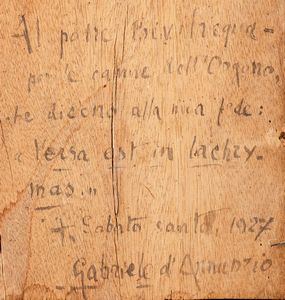 Al padre Bevilacqua -
per le canne dell'Organo,
che diedero alla mia fede:
"Versa est in lachry-
mas."
+ Sabato santo, 1927
Gabriele d'Annunzio